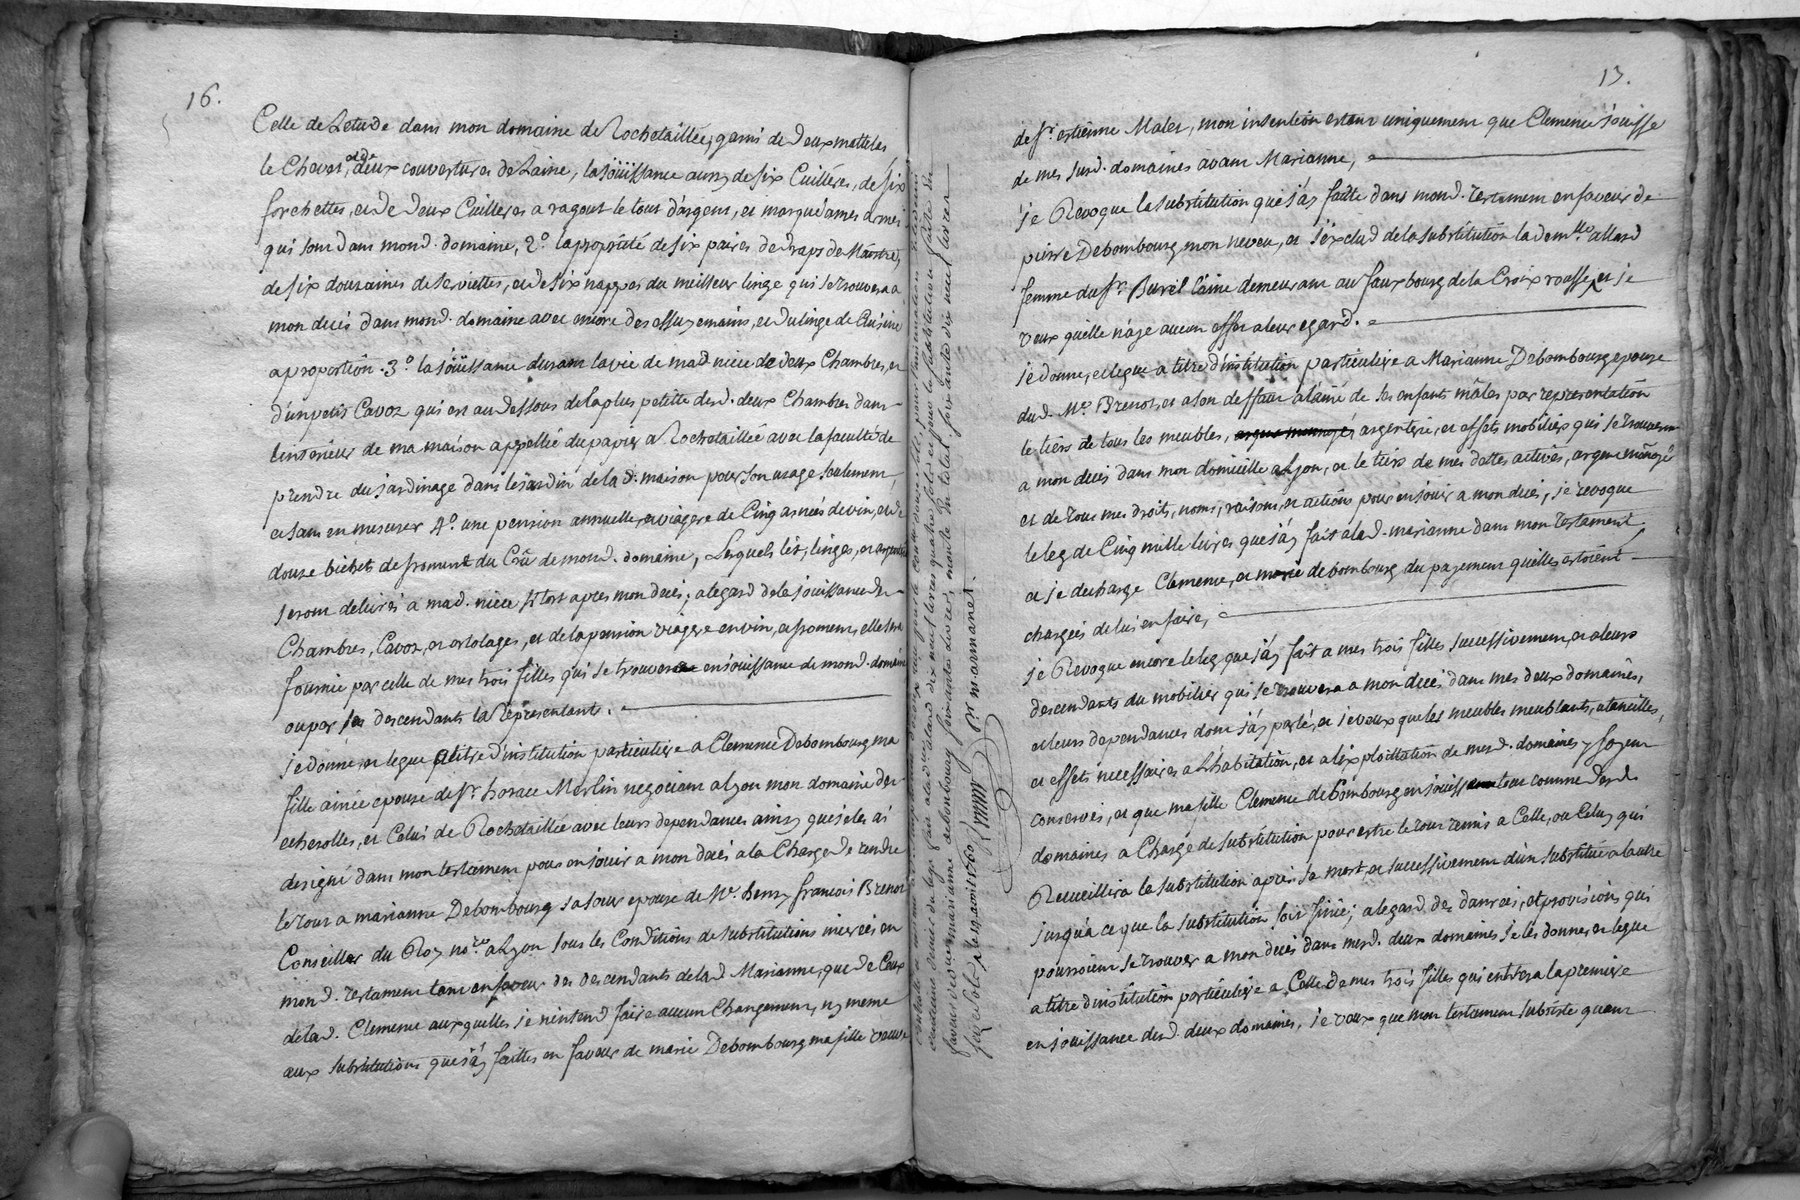 16.
Celle de Letude dans mon domaine de Rochetaillée, garni de deux mattelas
le Chevet, et de deux couvertures de Laine, la joüissance aussy de six Cuilléres, de six
forchettes, et de deux Cuilleres a ragout le tout d'argent, et marqué a mes armes
qui sont dans mond. domaine, 2.º la proprieté de six paires de draps de
de six douzaines de serviettes, et de six nappes du meilleur linge qui se trouvera a
mon decés dans mond. domaine avec encore des essuyemains, et du linge de Cuisine
a proportion. 3.º la joüissance durant la vie de mad. niece de deux Chambres, et
d'un petit Cavoz qui est au dessous de la plus petitte desd. deux Chambres dans
linterieur de ma maison appellée du papier a Rochetaillée avec la faculté de
prendre du jardinage dans le jardin de la d. maison pour son usage seulement,
et sans en mesurer 4.º une pension annuelle, et viagere de Cinq asnées de vin, et de
douze bichets de froment du Crû de mond. domaine, Lesquels lit, linges, et argenterie
seront delivrés a mad. niece sitost apres mon decés; a legard de la joüissance des
Chambres, Cavoz, et ortolages, et de la pension viagere en vin, et froment, elle sera
fournie par celle de mes trois filles qui se trouvera en joüissance de mond. domaine
ou par ses descendants la Representants.
je donne, et legue a titre d'institution particuliere a Clemence Debombourg ma
fille ainée epouse de Sr. horace Merlin negociant a Lyon mon domaine des
echerolles, et Celui de Rochetaillée avec leurs dependances ainsy que je les ai
designé dans mon testament pour en joüir a mon decés a la Charge de rendre
le tout a marianne Debombourg sa sœur epouse de Me. henry françois Brenot
Conseiller du Roy no.re a Lyon sous les Conditions de substitutions inserées en
mond. testament tant en faveur des descendants de lad. Marianne, que de Ceux
de lad. Clemence auxquelles je n'intend faire aucun Changement, ny meme
aux substitutions que j'ay faittes en faveur de marie Debombourg ma fille veuve
faveur de marianne debombourg
Lyon le 19 avril 1760
Marmanet
13.
de Sr. estienne Males, mon intention estant uniquement que Clemence joüisse
de mes susd. domaines avant Marianne,
je Revoque la substitution que j'ay faitte dans mond. testament en faveur de
pierre Debombourg mon neveu, et j'exclud de la substitution la dem.lle allard
femme du Sr. Burel l'aine demeurant au faux bourg de la Croix rousse, et je
veux quelle n'aye aucun effet a leur egard.
je donne, et legue a titre d'institution particuliere a Marianne Debombourg epouse
dud. Me. Brenot, et a son deffaut a l'ainé de ses enfants mâles par representation
le tiers de tous les meubles, argenterie, et effets mobiliers qui se trouveront
a mon decés dans mon domicille a Lyon, et le tiers de mes dettes actives, argent monoyé
et de tous mes droits, noms, raisons, et actions pour en joüir a mon decés, je revoque
le leg de Cinq mille livres que j'ay fait a lad. marianne dans mon testament,
et je decharge Clemence, et marie debombourg du payement quelles estoient
chargées de lui en faire,
je Revoque encore le leg que j'ay fait a mes trois filles successivement, et a leurs
descendants du mobilier qui se trouvera a mon decés dans mes deux domaines,
et leurs dependances dont j'ay parlé, et je veux que les meubles meublants, ustancilles,
et effets necessaires a L'habitation, et a l'exploittation de mesd. domaines y soyent
conservés, et que ma fille Clemence debombourg en joüisse comme desd.
domaines a Charge de substitution pour estre le tout remis a Celle, ou Celuy qui
Recueillira la substitution aprés sa mort, et successivement d'un substitué a lautre
jusqu'a ce que la substitution soit finie; a legard des danrées, et provisions qui
pourroient se trouver a mon decés dans mesd. deux domaines je les donne, et legue
a titre d'institution particuliere a Celle de mes trois filles qui entrera la premiere
en joüissance desd. deux domaines, je veux que mon testament subsiste quant